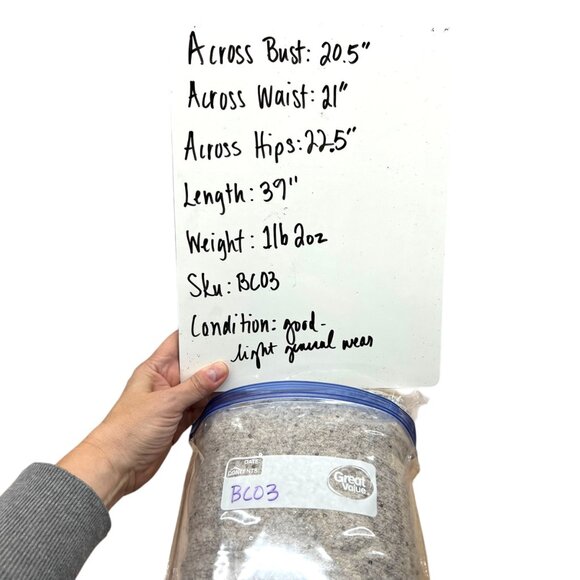 Across Bust: 20.5"
Across Waist: 21"
Across Hips: 22.5"
Length: 39"
Weight: 1lb 2oz
Sku: BC03
Condition: good-
light general wear
DATE
CONTENTS
BC03
Great
Value